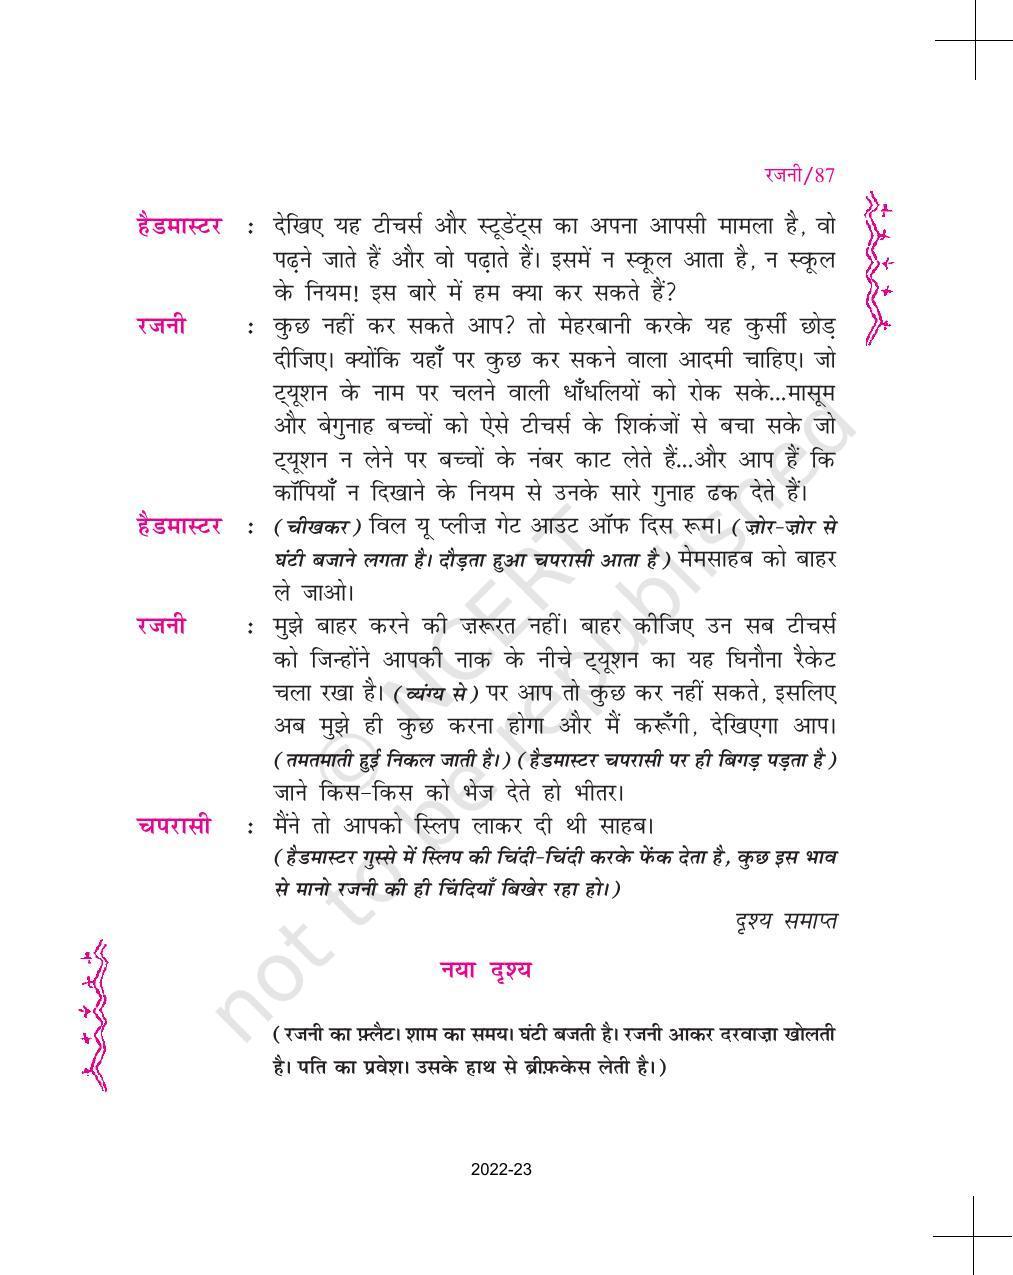 रजनी/87
हैडमास्टर : देखिए यह टीचर्स और स्टूडेंट्स का अपना आपसी मामला है, वो
पढ़ने जाते हैं और वो पढ़ाते हैं। इसमें न स्कूल आता है, न स्कूल
के नियम! इस बारे में हम क्या कर सकते हैं?
रजनी : कुछ नहीं कर सकते आप? तो मेहरबानी करके यह कुर्सी छोड़
दीजिए। क्योंकि यहाँ पर कुछ कर सकने वाला आदमी चाहिए। जो
ट्यूशन के नाम पर चलने वाली धाँधलियों को रोक सके...मासूम
और बेगुनाह बच्चों को ऐसे टीचर्स के शिकंजों से बचा सके जो
ट्यूशन न लेने पर बच्चों के नंबर काट लेते हैं...और आप हैं कि
कॉपियाँ न दिखाने के नियम से उनके सारे गुनाह ढक देते हैं।
हैडमास्टर : (चीखकर) विल यू प्लीज़ गेट आउट ऑफ दिस रूम। (ज़ोर-ज़ोर से
घंटी बजाने लगता है। दौड़ता हुआ चपरासी आता है) मेमसाहब को बाहर
ले जाओ।
रजनी : मुझे बाहर करने की ज़रूरत नहीं। बाहर कीजिए उन सब टीचर्स
को जिन्होंने आपकी नाक के नीचे ट्यूशन का यह घिनौना रैकेट
चला रखा है। (व्यंग्य से) पर आप तो कुछ कर नहीं सकते, इसलिए
अब मुझे ही कुछ करना होगा और मैं करूँगी, देखिएगा आप।
(तमतमाती हुई निकल जाती है।) (हैडमास्टर चपरासी पर ही बिगड़ पड़ता है)
जाने किस-किस को भेज देते हो भीतर।
चपरासी : मैंने तो आपको स्लिप लाकर दी थी साहब।
(हैडमास्टर गुस्से में स्लिप की चिंदी-चिंदी करके फेंक देता है, कुछ इस भाव
से मानो रजनी की ही चिंदियाँ बिखेर रहा हो।)
दृश्य समाप्त
नया दृश्य
(रजनी का फ़्लैट। शाम का समय। घंटी बजती है। रजनी आकर दरवाज़ा खोलती
है। पति का प्रवेश। उसके हाथ से ब्रीफ़केस लेती है।)
© NCERT
not to be republished
2022-23